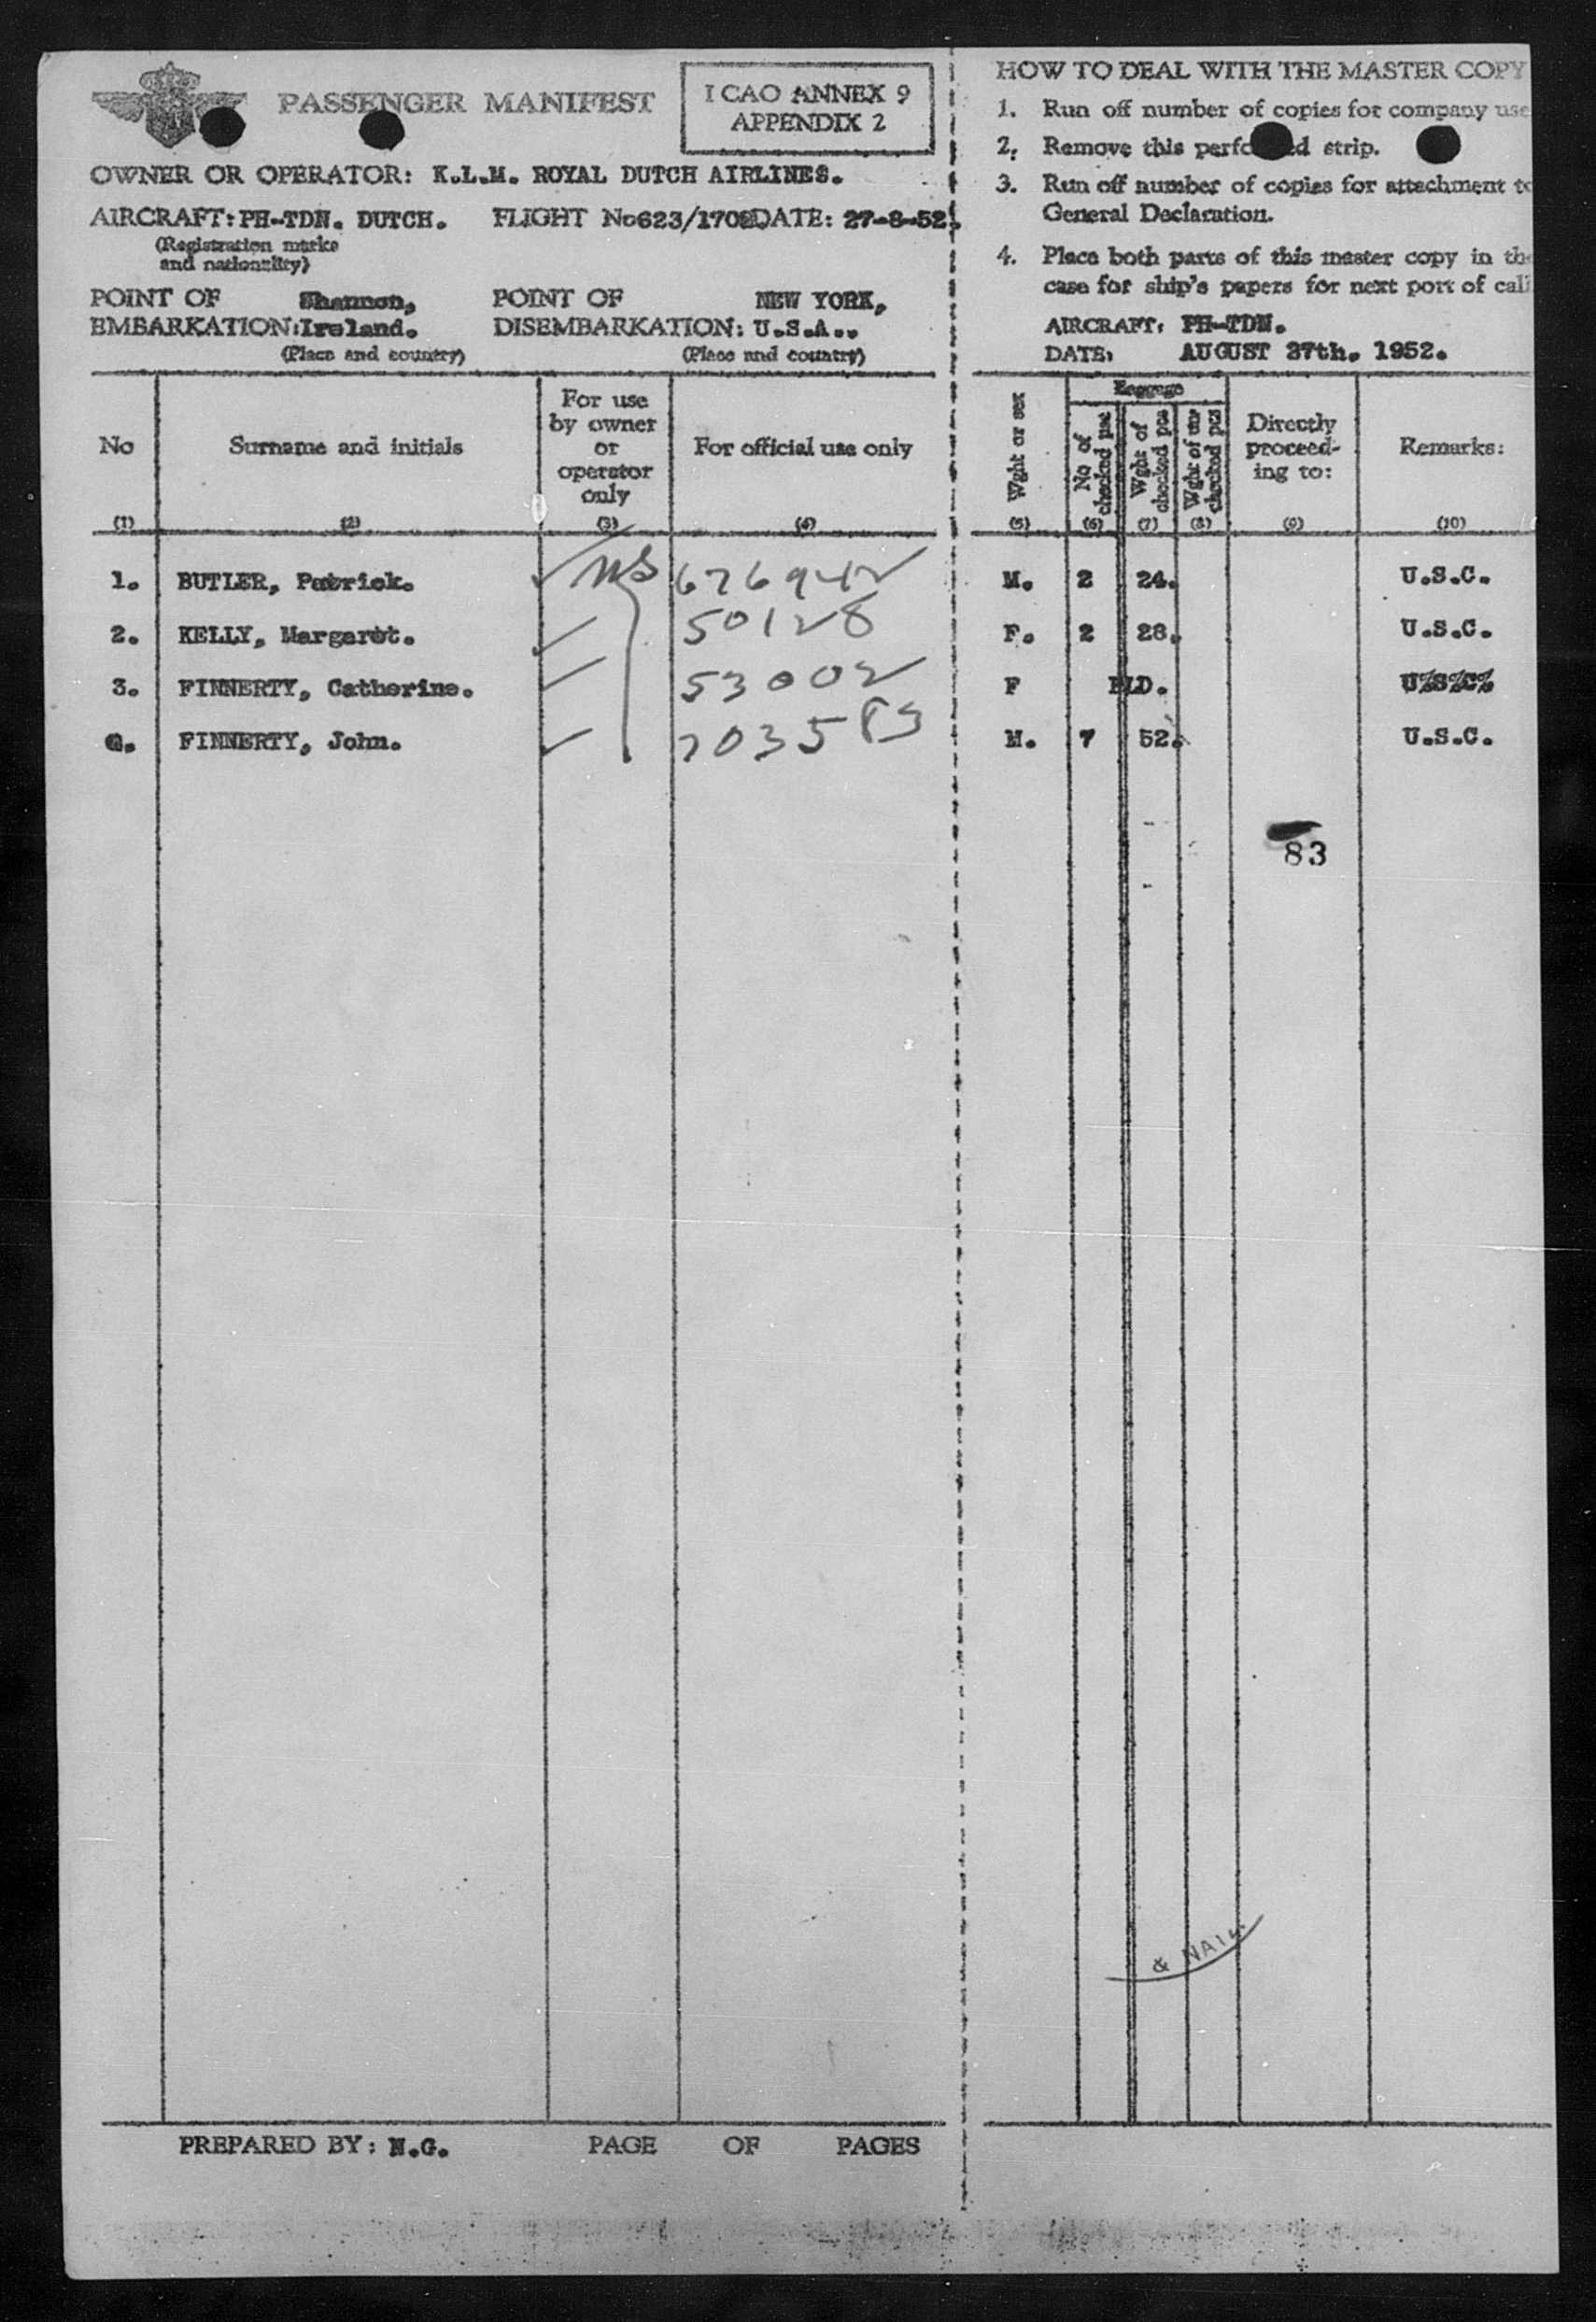 PASSENGER MANIFEST
I CAO ANNEX 9
APPENDIX 2
OWNER OR OPERATOR: K.L.M. ROYAL DUTCH AIRLINES.
AIRCRAFT: PH-TDN. DUTCH. FLIGHT No 623/170 DATE: 27-8-52.
(Registration marks
and nationality)
POINT OF Shannon, POINT OF NEW YORK,
EMBARKATION: Ireland. DISEMBARKATION: U.S.A..
(Place and country) (Place and country)
HOW TO DEAL WITH THE MASTER COPY
1. Run off number of copies for company use
2. Remove this strip.
3. Run off number of copies for attachment to
General Declaration.
4. Place both parts of this master copy in the
case for ship's papers for next port of call
AIRCRAFT: PH-TDN.
DATE: AUGUST 27th. 1952.
No Surname and initials For use by owner or operator only For official use only Wght or sex Baggage No of checked pcs Wght of checked pcs Wght of checked pcs Directly proceed- ing to: Remarks:
(1) (2) (3) (4) (5) (6) (7) (8) (9) (10)
1. BUTLER, Patrick. 676942 M. 2 24. U.S.C.
2. KELLY, Margaret. 50128 F. 2 28. U.S.C.
3. FINNERTY, Catherine. 53002 F PLD. U%S%C%
FINNERTY, John. 703583 M. 7 52. U.S.C.
83
& NAIL.
PREPARED BY: N.G. PAGE OF PAGES